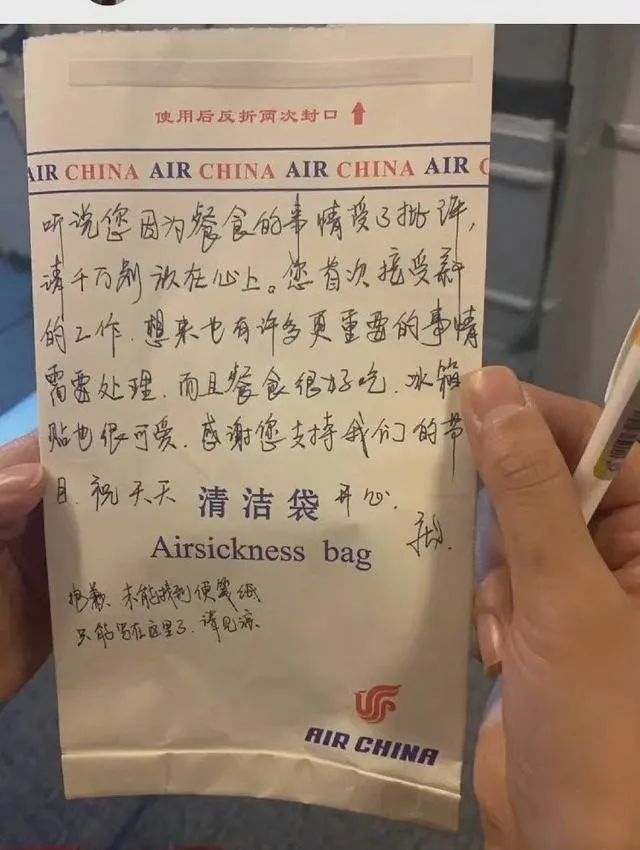 使用后反折两次封口
AIR CHINA AIR CHINA AIR CHINA AIR C
听说您因为餐食的事情受了批评,
请千万别放在心上。您首次接受新
的工作.想来也有许多更重要的事情
需要处理.而且餐食很好吃.冰箱
贴也很可爱.感谢您支持我们的节
目.祝天天开心.
清洁袋
Airsickness bag
抱歉.未能找到便笺纸
只能写在这里了.请见谅.
AIR CHINA